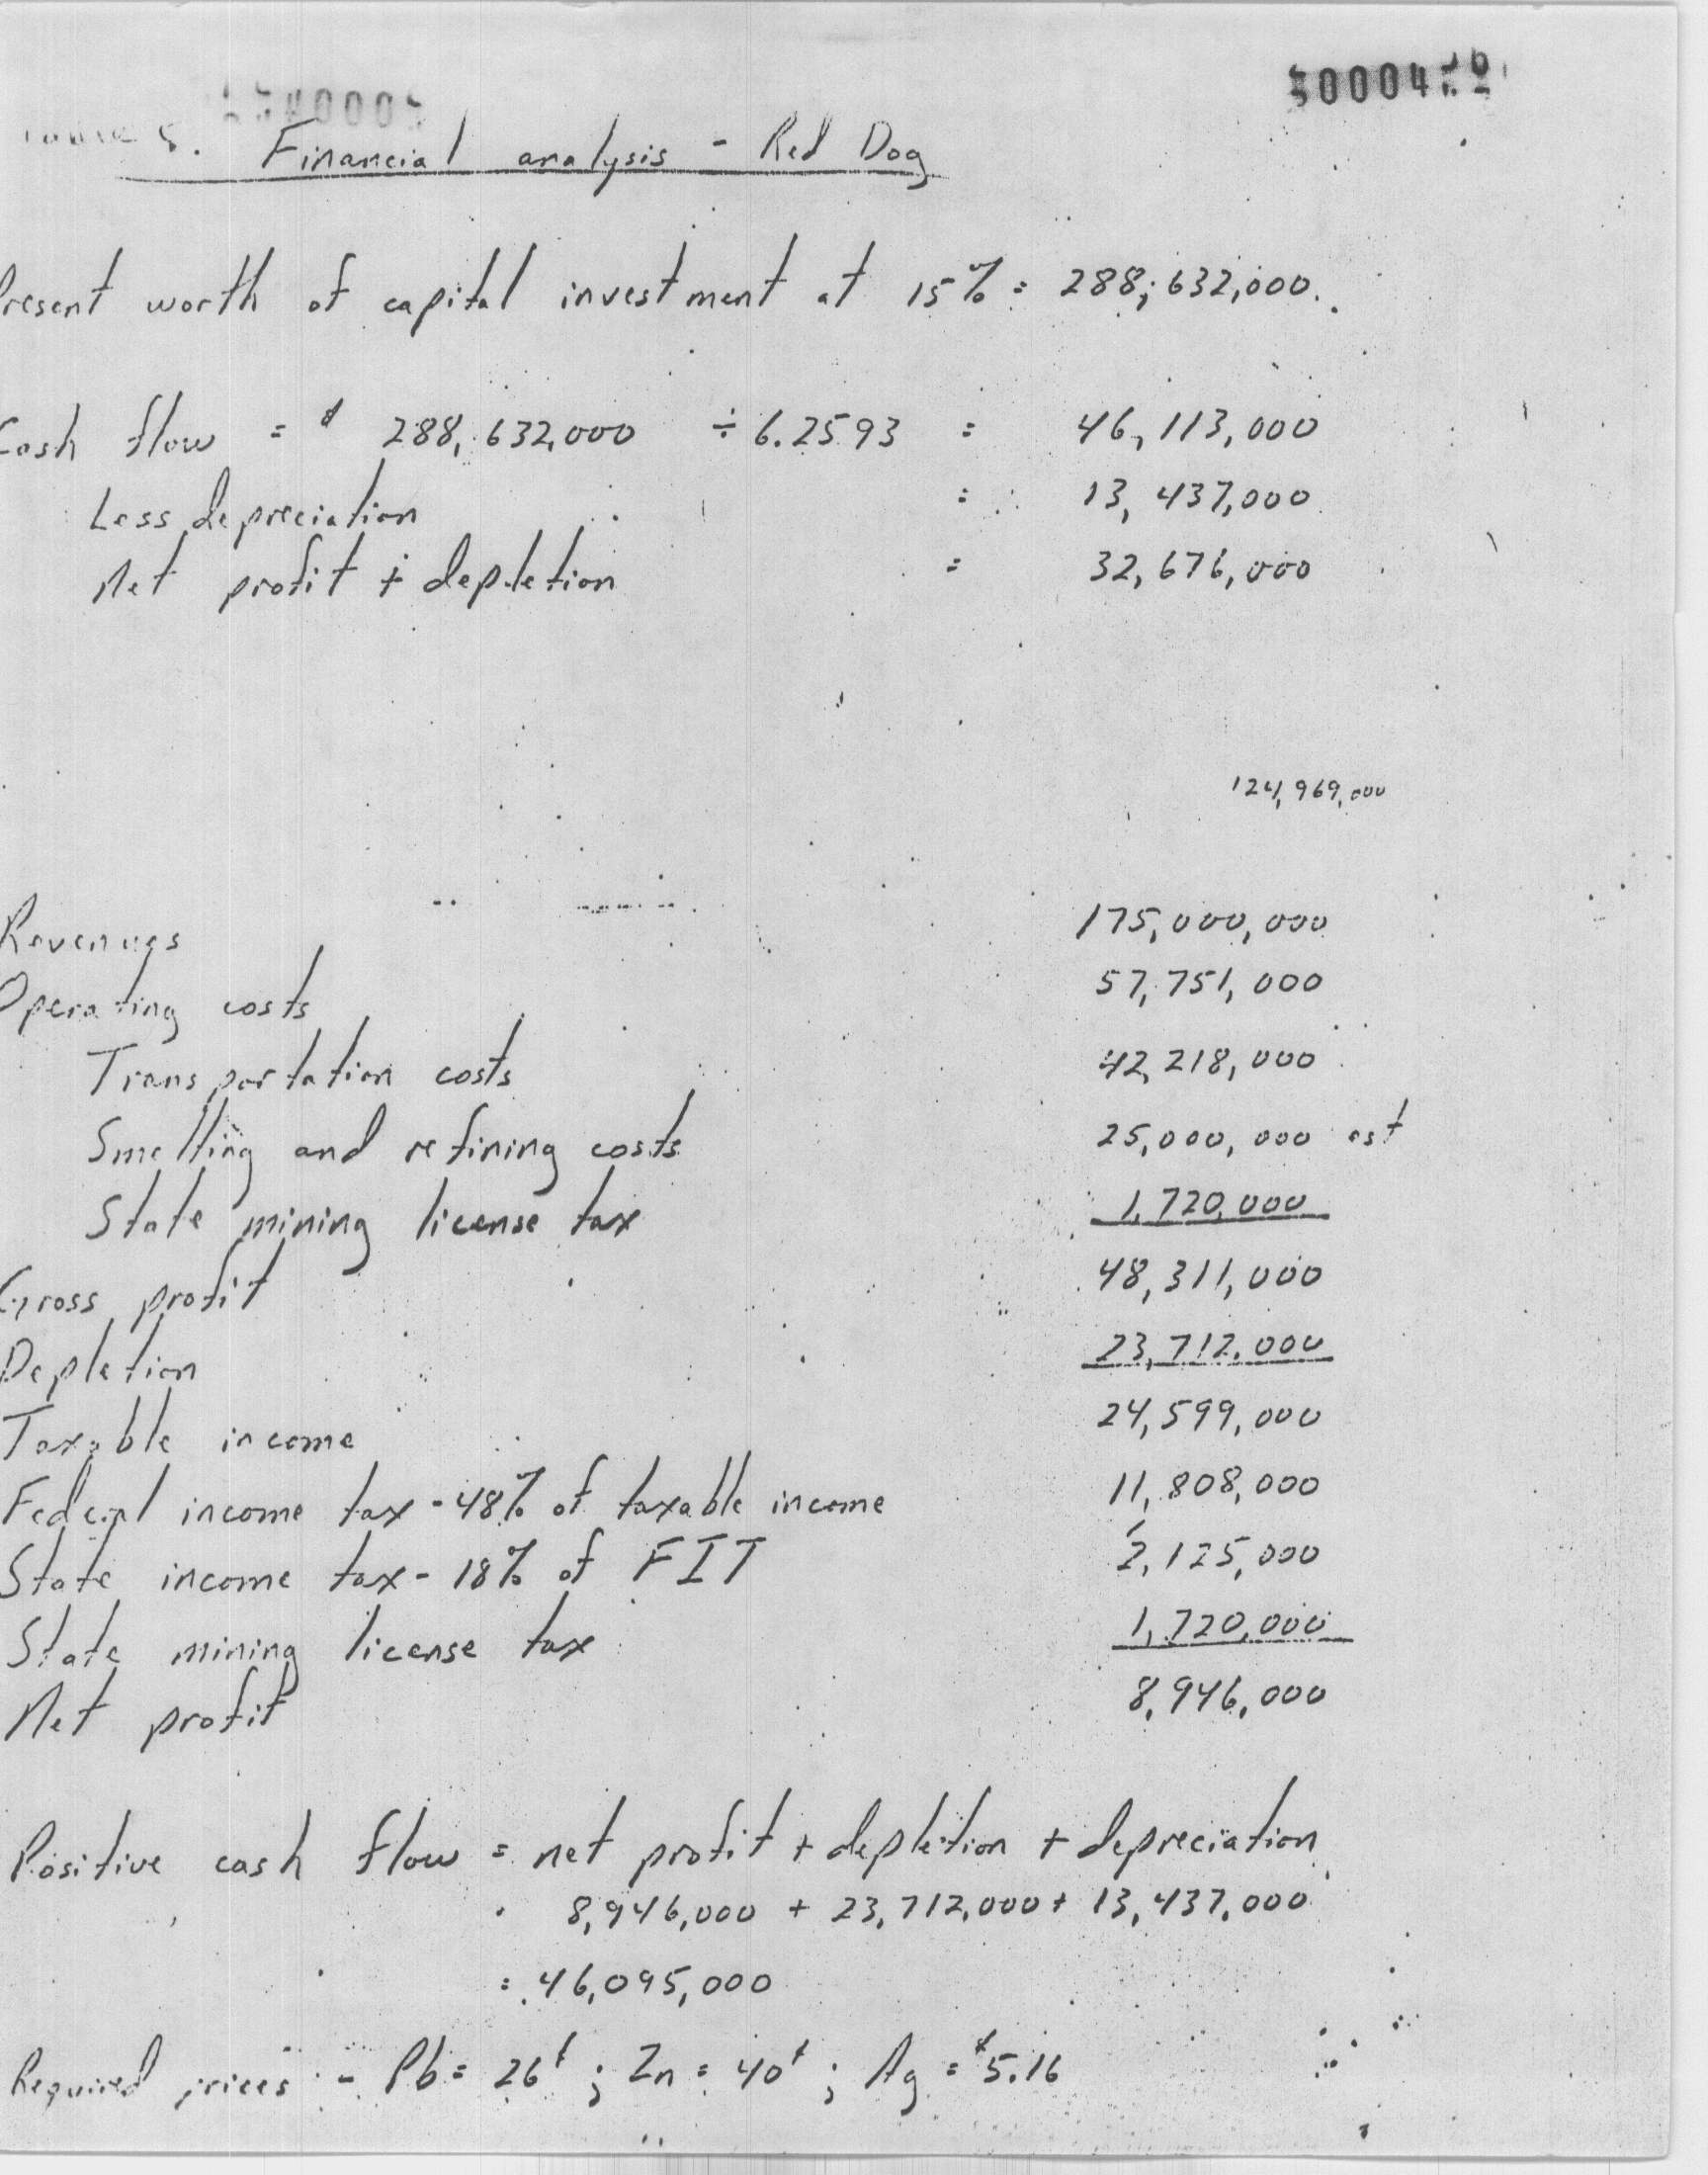 Financial analysis - Red Dog
Present worth of capital investment at 15% = 288,632,000.
Cash flow = $ 288,632,000 ÷ 6.2593 = 46,113,000
Less depreciation = 13,437,000
Net profit + depletion = 32,676,000
124,969,000
Revenues 175,000,000
Operating costs 57,751,000
Transportation costs 42,218,000
Smelting and refining costs 25,000,000 est
State mining license tax 1,720,000
Gross profit 48,311,000
Depletion 23,712,000
Taxable income 24,599,000
Federal income tax - 48% of taxable income 11,808,000
State income tax - 18% of FIT 2,125,000
State mining license tax 1,720,000
Net profit 8,946,000
Positive cash flow = net profit + depletion + depreciation
8,946,000 + 23,712,000 + 13,437,000
= 46,095,000
Required prices - Pb = 26¢ ; Zn = 40¢ ; Ag = $5.16